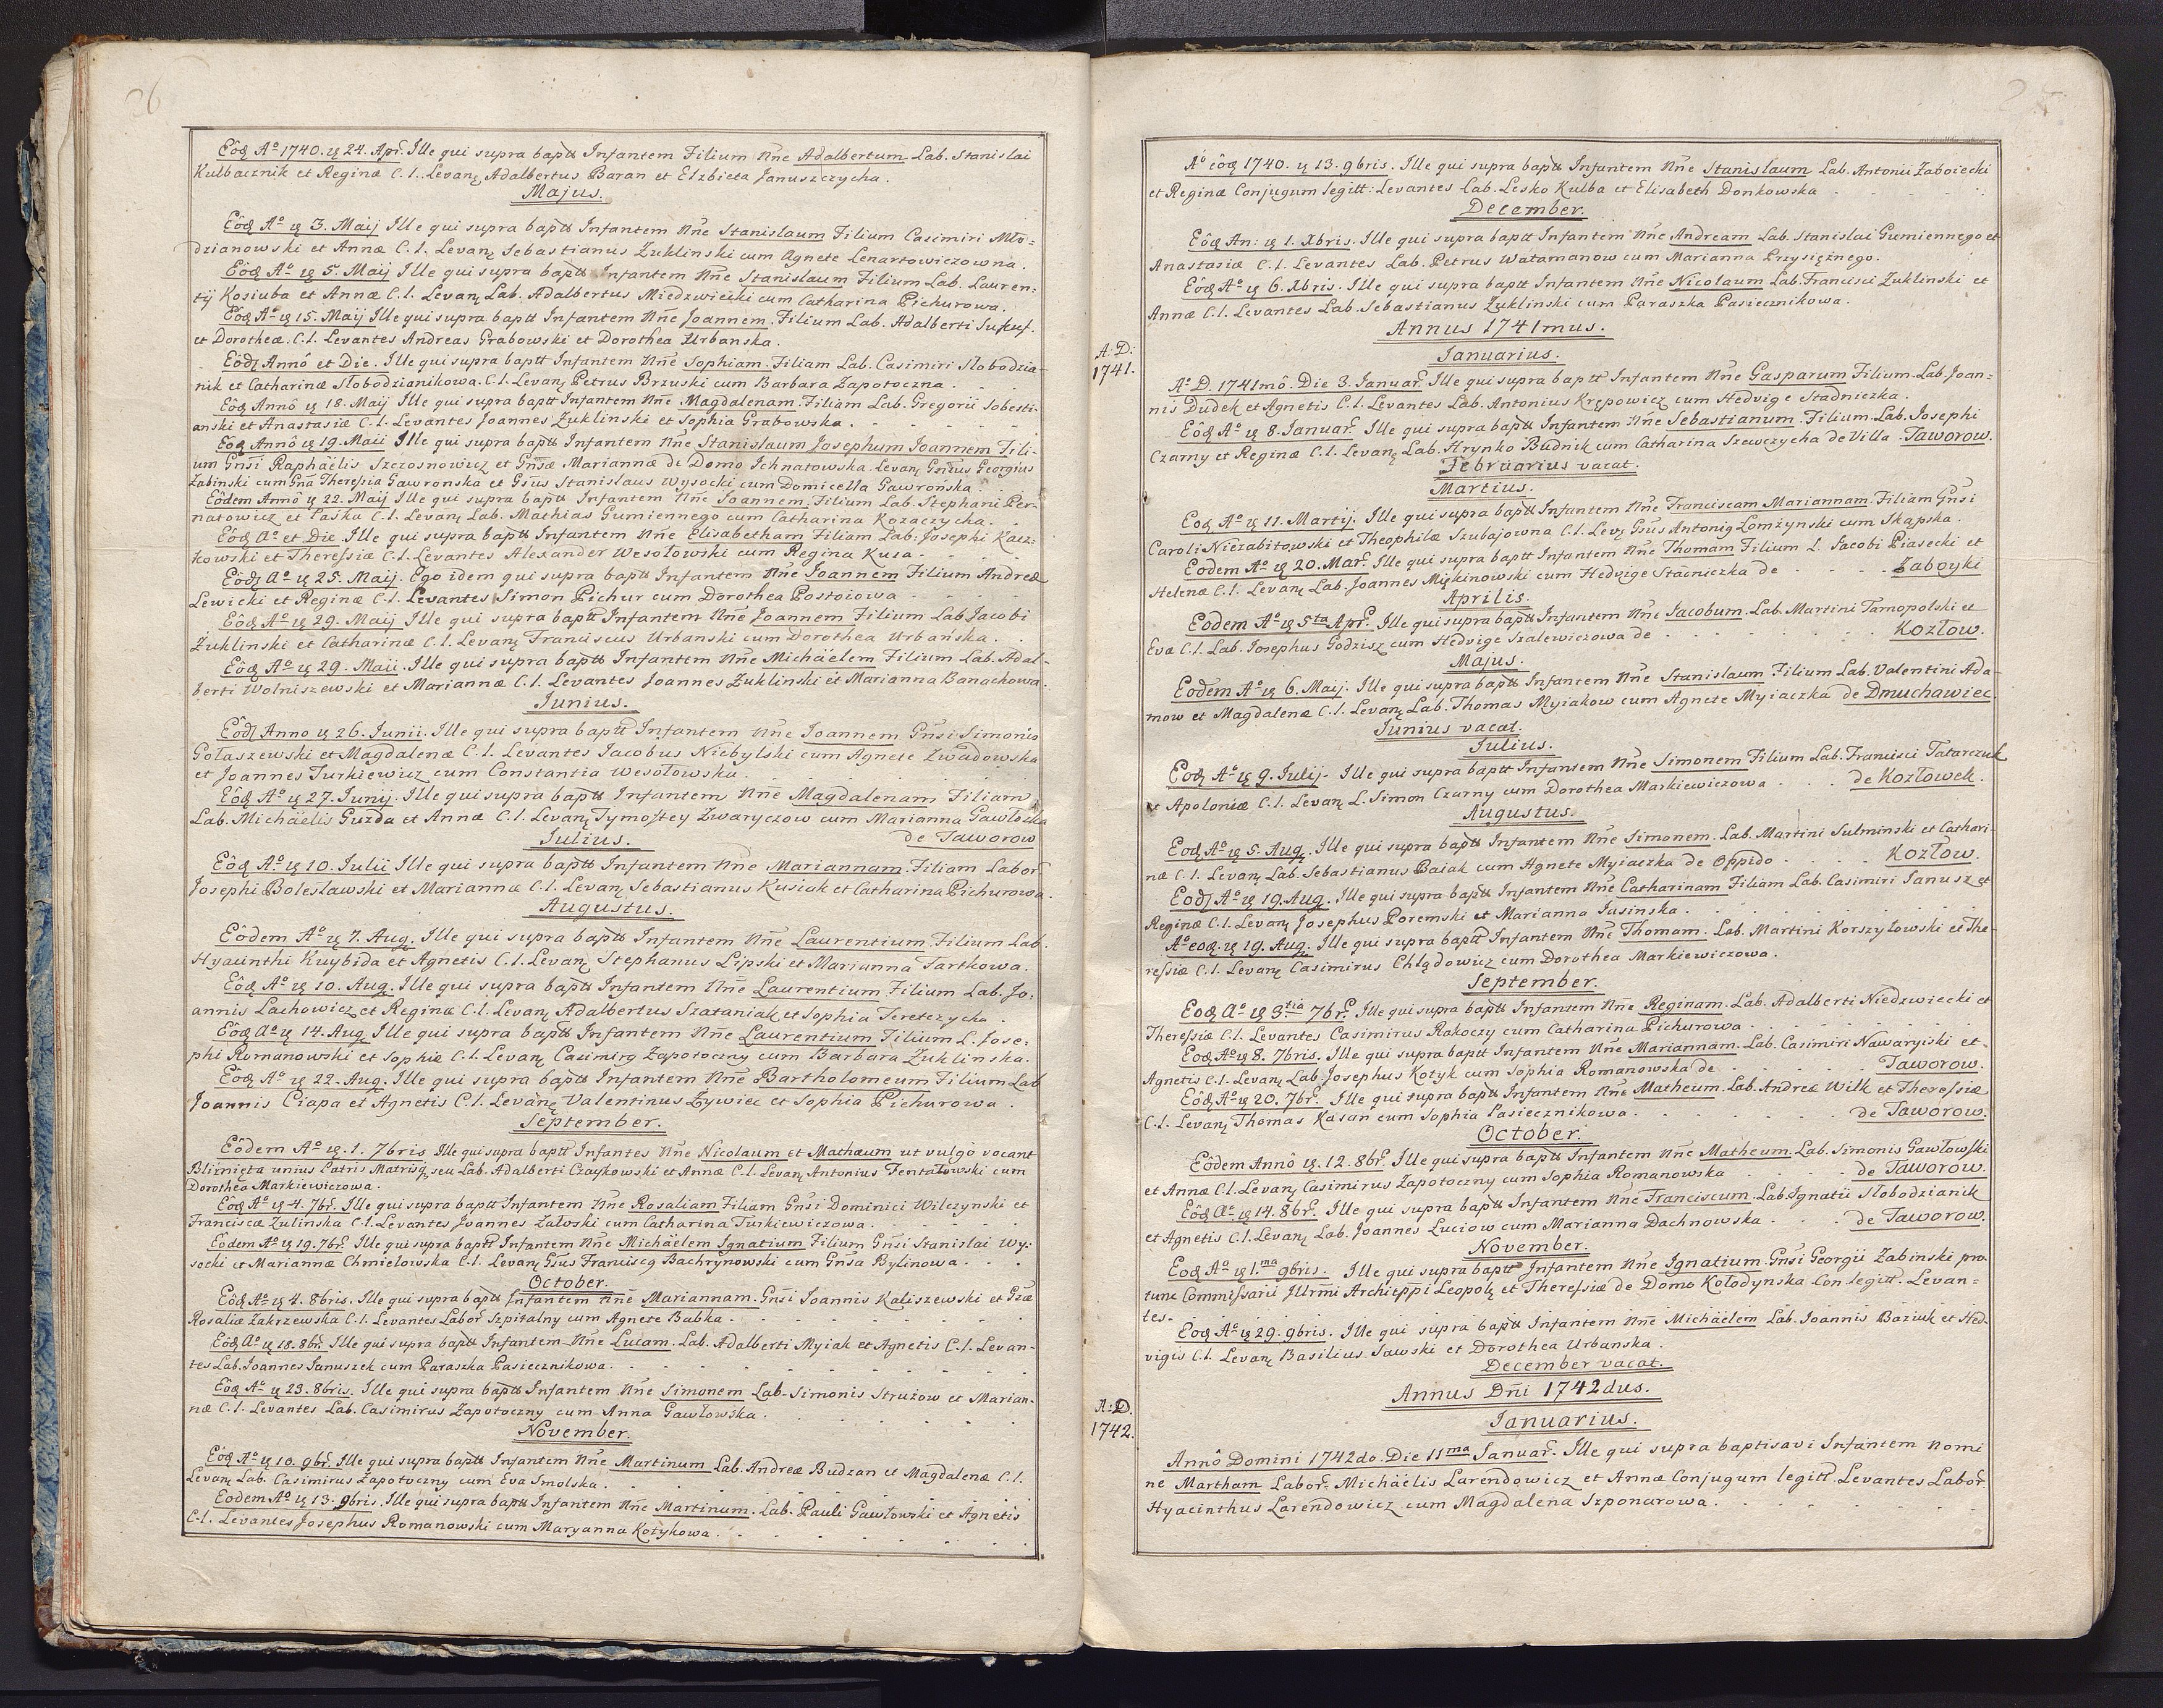 26
Eôḑ Aº 1740. ꝟ 24. Apr̃. Ille qui supra baptt Infantem Filium Nñe Adalbertum Lab. Stanislai
Kulbacznik et Reginæ C.l. Levanȩ Adalbertus Baran et Elzbieta Januszczycha.
Majus.
Eôḑ Aº ꝟ 3. Maij Ille qui supra baptt Infantem Nñe Stanislaum Filium Casimiri Mło=
dzianowski et Annæ C.l. Levanȩ Sebastianus Zuklinski cum Agnete Lenartowiczowna.
Eôḑ Aº ꝟ 5. Maij Ille qui supra baptt Infantem Nñe Stanislaum Filium Lab. Lauren:
tij Kosiuba et Annæ C.l. Levanȩ Lab. Adalbertus Miedzwiecki cum Catharina Pichurowa.
Eôḑ Aº ꝟ 15. Maij Ille qui supra baptt Infantem Nñe Joannem. Filium Lab. Adalberti
et Dorotheæ. C.l. Levantes Andreas Grabowski et Dorothea Urbanska.
Eôdȩ Annô et Die. Ille qui supra baptt Infantem Nñe Sophiam. Filiam Lab. Casimiri Słobodzia-
nik et Catharinæ Słobodzianikowa. C.l. Levanȩ Petrus Brzuski cum Barbara Zapotoczna.
Eôḑ Annô ꝟ 18. Maij Ille qui supra baptt Infantem Nñe Magdalenam. Filiam Lab. Gregorii Sobesti-
anski et Anastasiæ C.l. Levantes Joannes Zuklinski et Sophia Grabowska.
Eôḑ Annô ꝟ 19. Maii Ille qui supra baptt Infantem Nñe Stanislaum Josephum Joannem Fili-
um Gñsi Raphäelis Szczosnowicz et Gñsæ Mariannæ de Domo Jchnatowska. Levanȩ Gñsus Georgius
Żabinski cum Gñâ Theresia Gawronska et Gsus Stanislaus Wysocki cum Domicella Gawrońska.
Eôdem Annô ꝟ 22. Maij Ille qui supra baptt Infantem Nñe Joannem. Filium Lab. Stephani Per-
natowicz et Paśka C.l. Levanȩ Lab. Mathias Gumiennego cum Catharina Kozaczycha.
Eôḑ Aº et Die. Ille qui supra baptt Infantem Nñe Elisabetham Filiam Lab. Josephi Kacz:
kowski et Theressiæ C.l. Levantes Alexander Wesołowski cum Regina Kusa.
Eôdȩ Aº ꝟ 25. Maij. Ego idem qui supra baptt Infantem Nñe Joannem Filium Andreæ
Lewicki et Reginæ C.l. Levantes Simon Pichur cum Dorothea Postoiowa
Eôḑ Aº ꝟ 29. Maij Ille qui supra baptt Infantem Nñe Joannem Filium Lab Jacobi
Zuklinski et Catharinæ C.l. Levanȩ Franciscus Urbanski cum Dorothea Urbańska.
Eôḑ Aº ꝟ 29. Maii. Ille qui supra baptt Infantem Nñe Michäelem Filium Lab. Adal-
berti Wolniszewski et Mariannæ C.l. Levantes Joannes Zuklinski et Marianna Banachowa.
Junius.
Eôdȩ Anno ꝟ 26. Junii. Ille qui supra baptt Infantem Nñe Joannem Gñsi Simonis
Gołaszewski et Magdalenæ C.l. Levantes Jacobus Niebylski cum Agnete Zwadowska
et Joannes Turkiewicz cum Constantia Wesołowska.
Eôḑ Aº ꝟ 27. Junij. Ille qui supra baptt Infantem Nñe Magdalenam Filiam
Lab. Michäelis Guzda et Annæ C.l. Levanȩ Tymostey Zwaryczow cum Marianna Gawłoska
Julius. de Taworow
Eôḑ Aº ꝟ 10. Julii Ille qui supra baptt Infantem Nñe Mariannam. Filiam Labor̃
Josephi Bolesławski et Mariannæ C.l. Levanȩ Sebastianus Kusiak et Catharina Pichurowa.
Augustus.
Eôdem Aº ꝟ 7. Augȩ. Ille qui supra baptt Infantem Nñe Laurentium Filium Lab.
Hyacinthi Kuybida et Agnetis C.l. Levanȩ Stephanus Lipski et Marianna Tartkowa.
Eôḑ Aº ꝟ 10. Aug. Ille qui supra baptt Infantem Nñe Laurentium Filium Lab. Jo:
annis Lachowicz et Reginæ C.l. Levanȩ Adalbertus Szataniak et Sophia Teretczycha.
Eôḑ Aº ꝟ 14. Aug Ille qui supra baptt Infantem Nñe Laurentium Filium L. Jose:
phi Romanowski et Sophiæ C.l. Levanȩ Casimirg Zapotoczny cum Barbara Zuklinska.
Eôḑ Aº ꝟ 22. Aug. Ille qui supra baptt Infantem Nñe Bartholomeum Filium Lab
Joannis Ciapa et Agnetis C.l. Levanȩ Valentinus Zywiec et Sophia Pichurowa.
September.
Eôdem Aº ꝟ. 1. 7bris Ille qui supra baptt Infantes Nñe Nicolaum et Mathæum ut vulgô vocant
Blimięta unius Patris Matrisq̧ seu Lab. Adalberti Czaykowski et Annæ C.l. Levanȩ Antonius Pentałowski cum
Dorothea Markiewiczowa.
Eôḑ Aº ꝟ 4. 7br̃. Ille qui supra baptt Infantem Nñe Rosaliam Filiam Gñsi Dominici Wilczynski et
Franciscæ Zulinska C.l. Levantes Joannes Załoski cum Catharina Turkiewiczowa.
Eôdem Aº ꝟ 19. 7br̃. Ille qui supra baptt Infantem Nñe Michäelem Ignatium Filium Gñsi Stanislai Wy:
socki et Mariannæ Chmielowska C.l. Levanȩ Gsus Franciscg Bachrynowski cum Gñsa Bylinowa.
October.
Eôḑ Aº ꝟ 4. 8bris. Ille qui supra baptt Infantem Nñe Mariannam. Gñsi Joannis Kaliszewski et Gsæ
Rosaliæ Zakrzewska C.l. Levantes Labor̃ Szpitalny cum Agnete Babka.
Eôḑ Aº ꝟ 18. 8br̃. Ille qui supra baptt Infantem Nñe Lucam. Lab. Adalberti Myiak et Agnetis C.l. Levan-
tes Lab. Joannes Januszek cum Paraszka Pasiecznikowa.
Eôḑ Aº ꝟ 23. 8bris. Ille qui supra baptt Infantem Nñe Simonem Lab. Simonis Strużow et Marian-
næ C.l. Levantes Lab. Casimirus Zapotoczny cum Anna Gawłowska.
November.
Eôḑ Aº ꝟ 10. 9br̃. Ille qui supra baptt Infantem Nñe Martinum Lab. Andreæ Budzan et Magdalenæ C.l.
Levanȩ Lab. Casimirus Zapotoczny cum Eva Smolska.
Eodem Aº ꝟ 13. 9bris. Ille qui supra baptt Infantem Nñe Martinum. Lab. Pauli Gawłowski et Agnetis
C.l. Levantes Josephus Romanowski cum Maryanna Kotykowa.
Aº eôḑ 1740. ꝟ 13. 9bris. Ille qui supra baptt Infantem Nñe Stanislaum Lab. Antonii Zaboiecki
et Reginæ Conjugum legitt: Levantes Lab. Lesko Kulba et Elisabeth Donkowska
December.
Eôḑ An: ꝟ 1. Xbris. Ille qui supra baptt Infantem Nñe Andream Lab. Stanislai Gumiennego et
Anastasiæ C.l. Levantes Lab. Petrus Watamanow cum Marianna Przysiężnego.
Eôḑ Aº ꝟ 6. Xbris. Ille qui supra baptt Infantem Nñe Nicolaum Lab. Francisci Zuklinski et
Annæ C.l. Levantes Lab. Sebastianus Zuklinski cum Paraszka Pasiecznikowa.
Annus 1741mus.
A: D:
1741.
Januarius.
Aº D. 1741mô. Die 3. Januar̃. Ille qui supra baptt Infantem Nñe Gasparum Filium Lab. Joan=
nis Dudek et Agnetis C.l. Levantes Lab. Antonius Krępowicz cum Hedvige Stadniczka.
Eôḑ Aº ꝟ 8. Januar̃. Ille qui supra baptt Infantem Nñe Sebastianum. Filium Lab. Josephi
Czarny et Reginæ C.l. Levanȩ Lab. Hrynko Budnik cum Catharina Szewczycha de Villa Taworow.
Februarius vacat.
Martius.
Eoḑ Aº ꝟ 11. Martij. Ille qui supra baptt Infantem Nñe Franciscam Mariannam. Filiam Gñsi
Caroli Niezabitowski et Theophilæ Szubajowna C.l. Levȩ Gsus Antonig Łomżynski cum Skąpska.
Eodem Aº ꝟ 20. Mar̃. Ille qui supra baptt Infantem Nñe Thomam Filium L. Jacobi Piasecki et
Helenæ C.l. Levanȩ Lab. Joannes Miękinowski cum Hedvige Staniczka de Zaboyki
Aprilis.
Eodem Aº ꝟ 5ta Apr̃. Ille qui supra baptt Infantem Nñe Jacobum. Lab. Martini Tarnopolski et
Evæ C.l. Lab. Josephus Godzisz cum Hedvige Szalewiczowa de Kozłow.
Majus.
Eodem Aº ꝟ 6. Maij. Ille qui supra baptt Infantem Nñe Stanislaum Filium Lab. Valentini Ada-
mow et Magdalenæ C.l. Levanȩ Lab. Thomas Myiakow cum Agnete Myiaczka de Dmuchawiec.
Junius vacat.
Julius.
Eoḑ Aº ꝟ 9. Julij. Ille qui supra baptt Infantem Nñe Simonem Filium Lab. Francisci Tatarczuk
et Apoloniæ C.l. Levanȩ L. Simon Czarny cum Dorothea Markiewiczowa de Kozłowek.
Augustus.
Eoḑ Aº ꝟ 5. Augȩ. Ille qui supra baptt Infantem Nñe Simonem. Lab. Martini Sulminski et Cathari-
næ C.l. Levanȩ Lab. Sebastianus Baiak cum Agnete Myiaczka de Oppido Kozłow.
Eodȩ Aº ꝟ 19. Aug. Ille qui supra baptt Infantem Nñe Catharinam Filiam Lab. Casimiri Janusz et
Reginæ C.l. Levanȩ Josephus Poremski et Marianna Jusinska.
Aº eoḑ. ꝟ 19. Aug. Ille qui supra baptt Infantem Nñe Thomam. Lab. Martini Korszyłowski et The-
ressiæ C.l. Levanȩ Casimirus Chłądowicz cum Dorothea Markiewiczowa.
September.
Eoḑ Aº ꝟ 3tia 7br̃. Ille qui supra baptt Infantem Nñe Reginam. Lab. Adalberti Niedzwiecki et
Theressiæ C.l. Levantes Casimirus Rakoczy cum Catharina Pichurowa.
Eoḑ Aº ꝟ 8. 7bris. Ille qui supra baptt Infantem Nñe Mariannam. Lab. Casimiri Nawaryiski et
Agnetis C.l. Levanȩ Lab. Josephus Kotyk cum Sophia Romanowska de Taworow.
Eôḑ Aº ꝟ 20. 7br̃. Ille qui supra baptt Infantem Nñe Matheum. Lab. Andreæ Wilk et Theressiæ
C.l. Levanȩ Thomas Kasan cum Sophia Pasiecznikowa. de Taworow.
October.
Eôdem Annô ꝟ. 12. 8br̃. Ille qui supra baptt Infantem Nñe Matheum. Lab. Simonis Gawłowski
et Annæ C.l. Levanȩ Casimirus Zapotoczny cum Sophia Romanowska de Taworow.
Eôḑ Aº ꝟ 14. 8br̃. Ille qui supra baptt Infantem Nñe Franciscum. Lab. Ignatii Słobodzianik
et Agnetis C.l. Levanȩ Lab. Joannes Luciow cum Marianna Dachnowska. de Taworow.
November.
Eoḑ Aº ꝟ 1.ma 9bris. Ille qui supra baptt Infantem Nñe Ignatium. Gñsi Georgii Zabinski pro
tunc Commissarii Illrmi Archieppi Leopolȩ et Theressiæ de Domo Kołodynska Con legitt. Levan=
tes.
Eoḑ Aº ꝟ 29. 9bris. Ille qui supra baptt Infantem Nñe Michäelem Lab. Joannis Baziuk et Hed-
vigis C.l. Levanȩ Basilius Sawski et Dorothea Urbanska.
December vacat.
Annus Dñi 1742dus.
A: D.
1742.
Januarius.
Annô Domini 1742do. Die 11ma Januar̃. Ille qui supra baptisavi Infantem nomi
ne Martham Labor̃. Michäelis Larendowicz et Annæ Conjugum legitt Levantes Labor̃
Hyacinthus Larendowicz cum Magdalena Szponarowa.